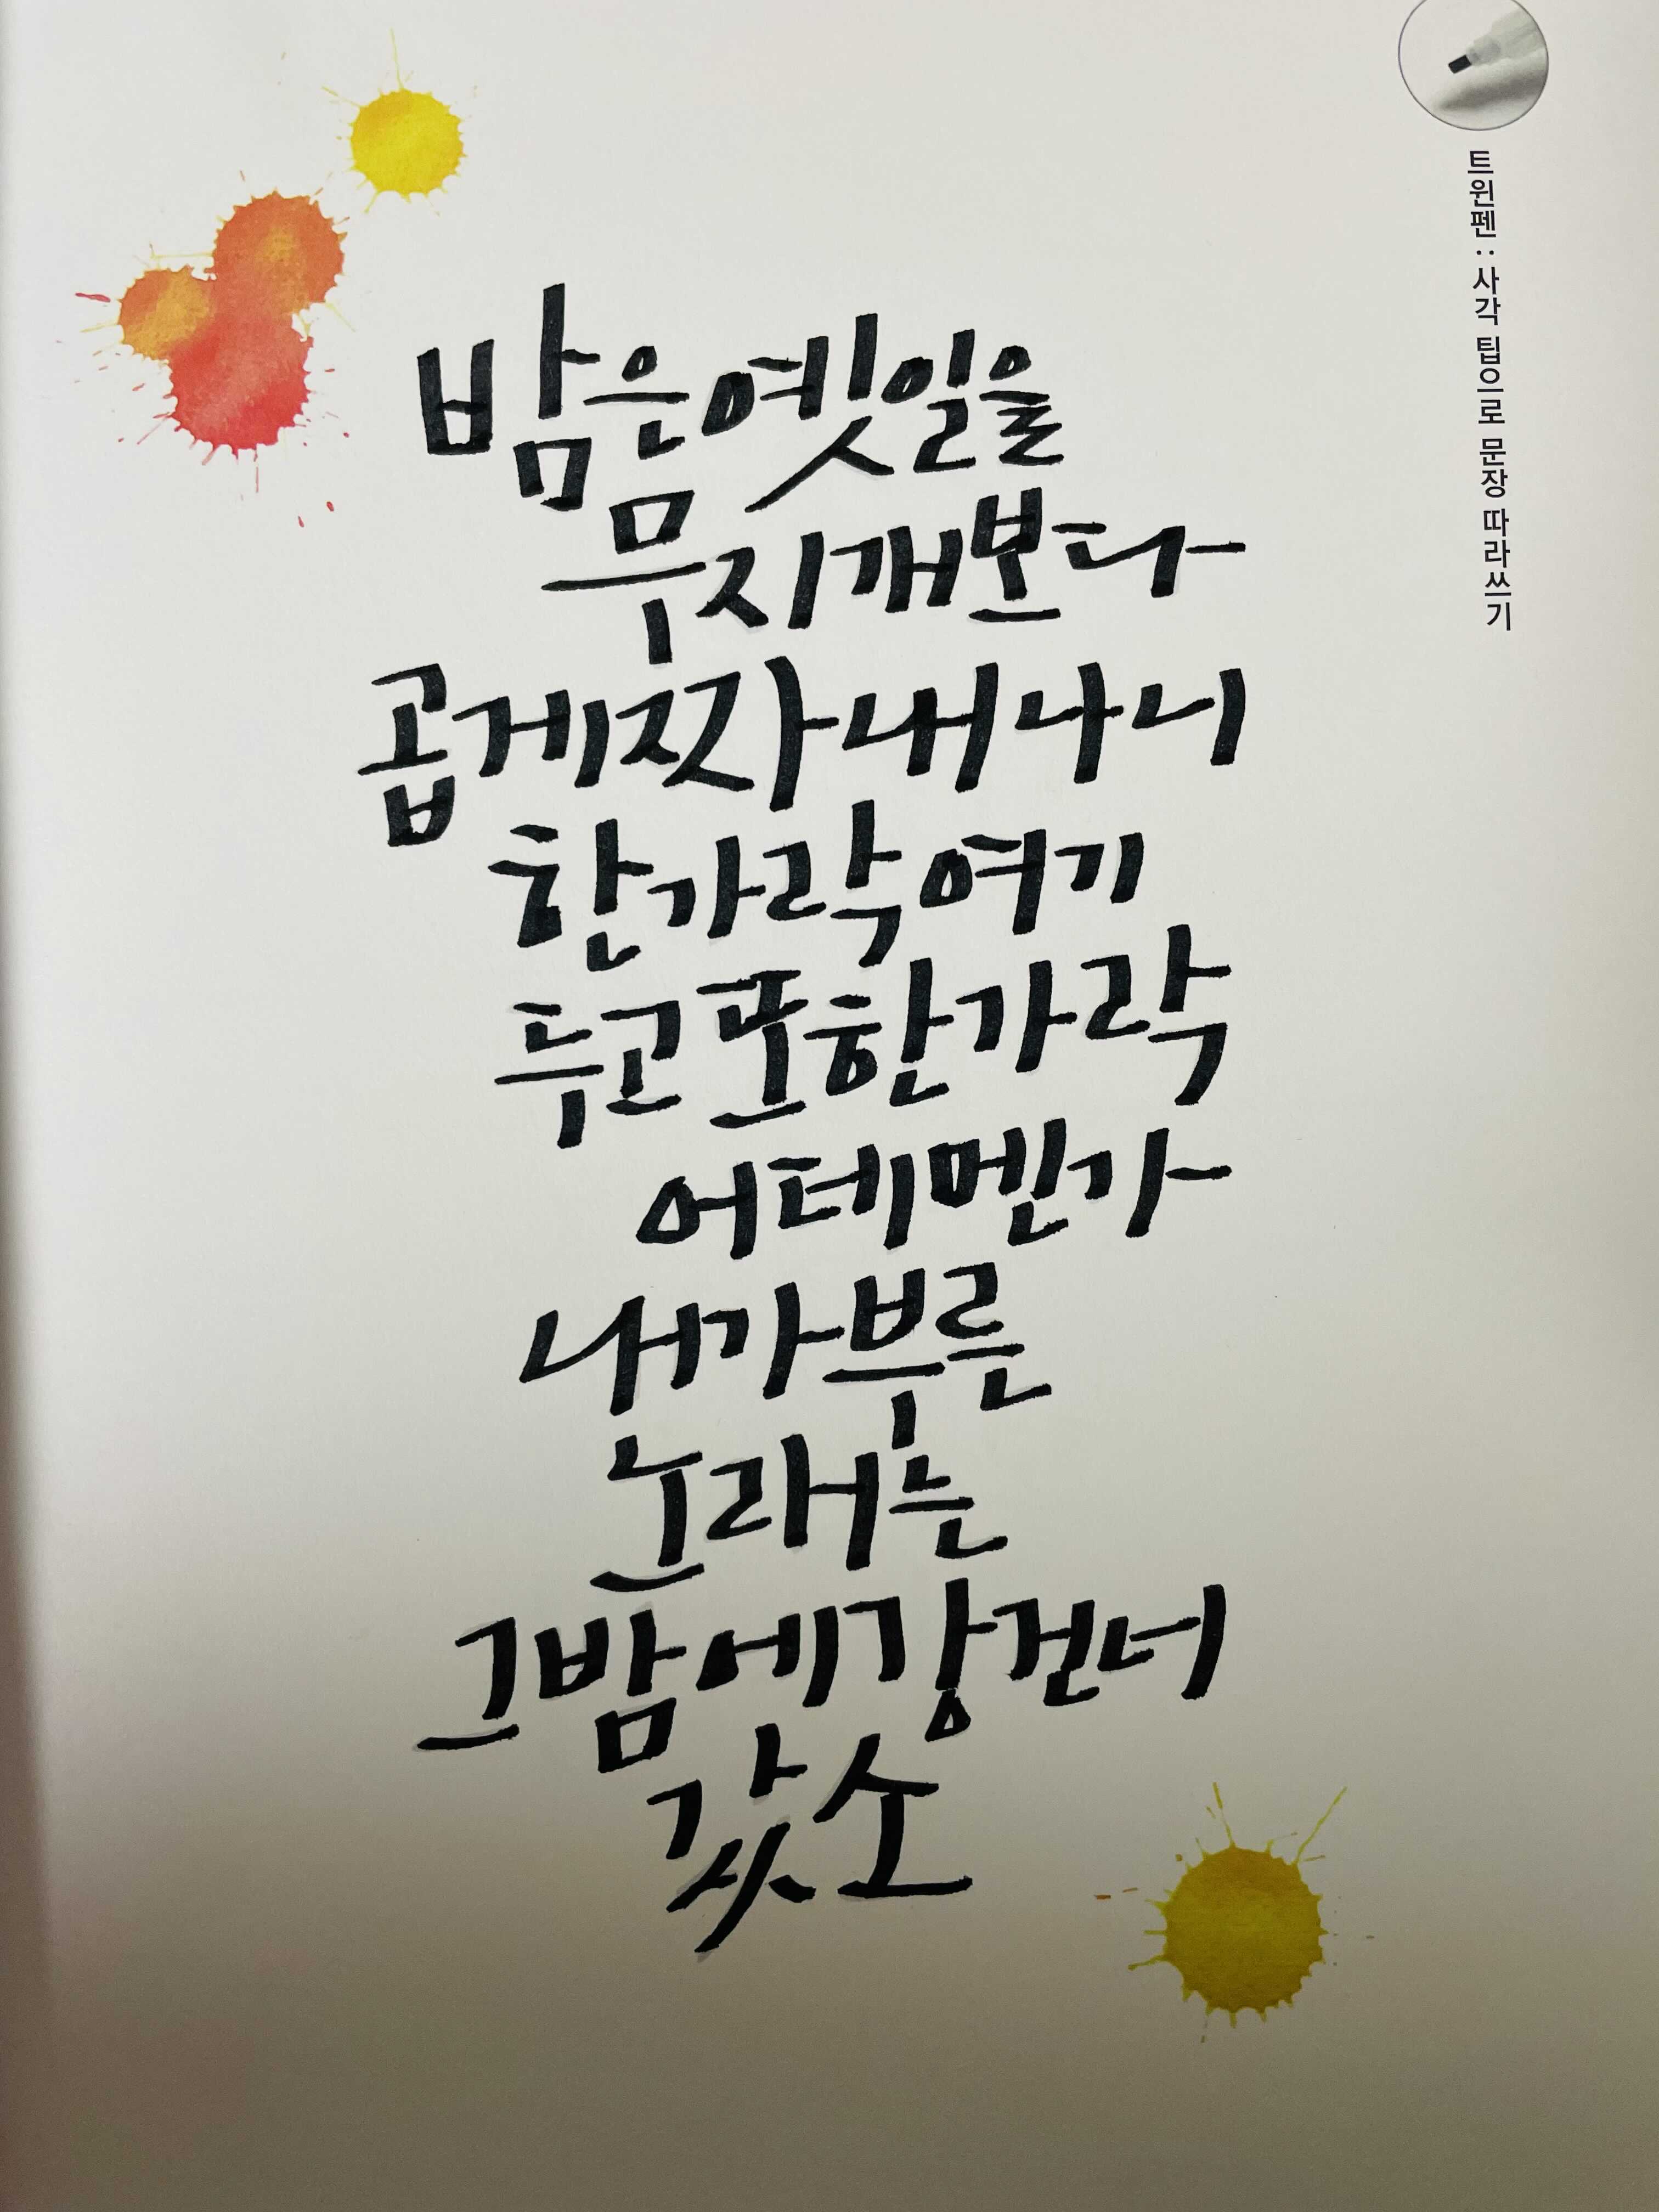 트윈펜 :: 사각 팁으로 문장 따라쓰기
밤은 옛일을
무지개보다
곱게 짜내나니
한가락 여기
두고 또 한가락
어데멘가
내가 부른
노래는
그 밤에 강 건너
갔소